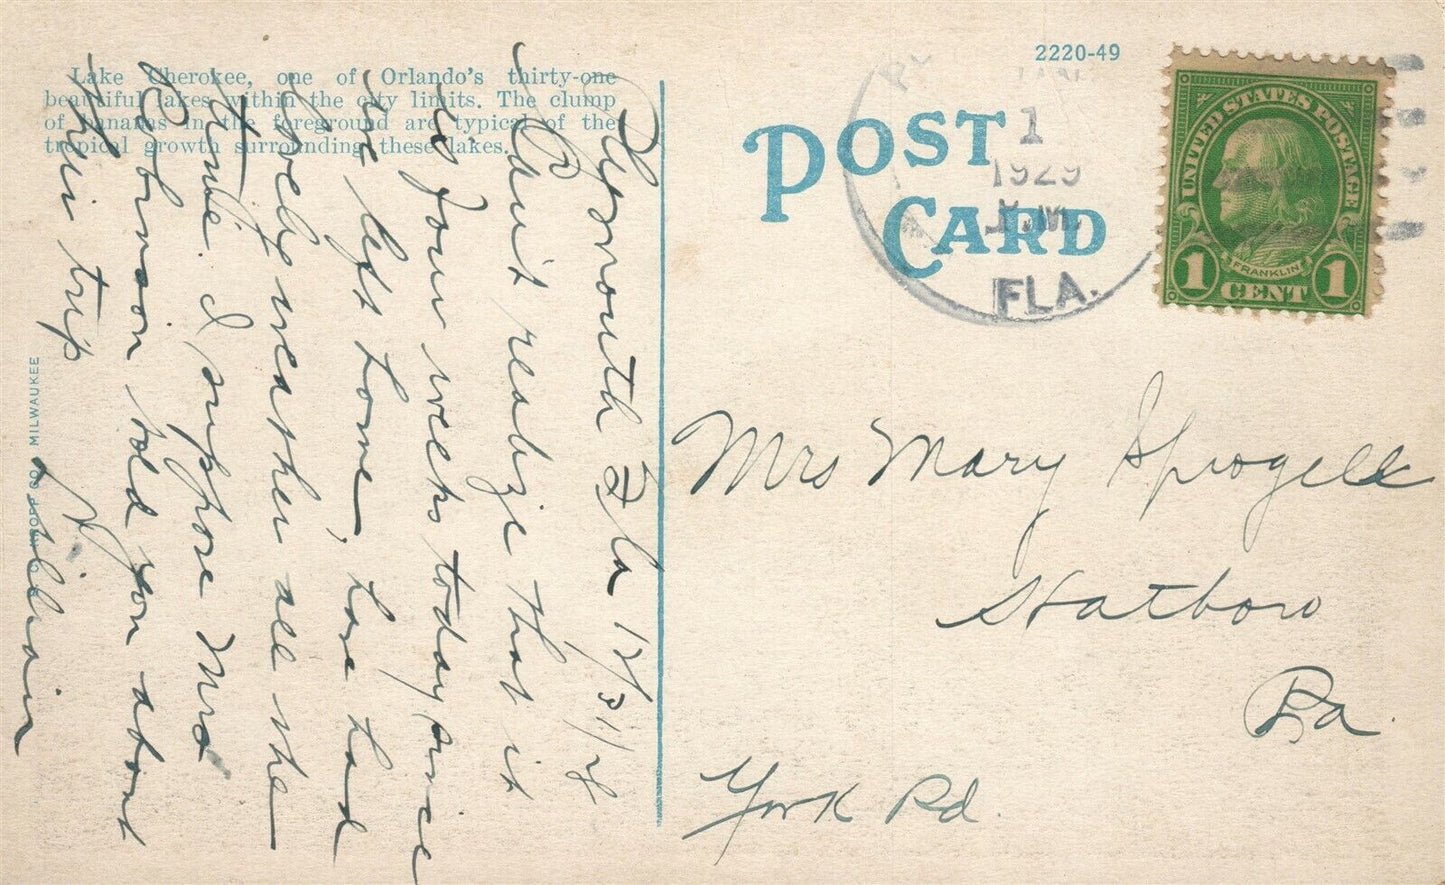 Lake Cherokee, one of Orlando's thirty-one
beautiful lakes within the city limits. The clump
of bananas in the foreground are typical of the
tropical growth surrounding these lakes.
2220-49
POST
CARD
JAN
1
1929
P.M.
FLA.
UNITED STATES POSTAGE
FRANKLIN
1 CENT 1
Plymouth Fla 12/31/28
Can't realize that it
is four weeks today since
we left home, have had
lovely weather all the
time. I suppose Mrs
Robinson told you about
this trip
Lillian
CO. MILWAUKEE
Mrs Mary Sprogell
Statboro
Pa.
York Rd.